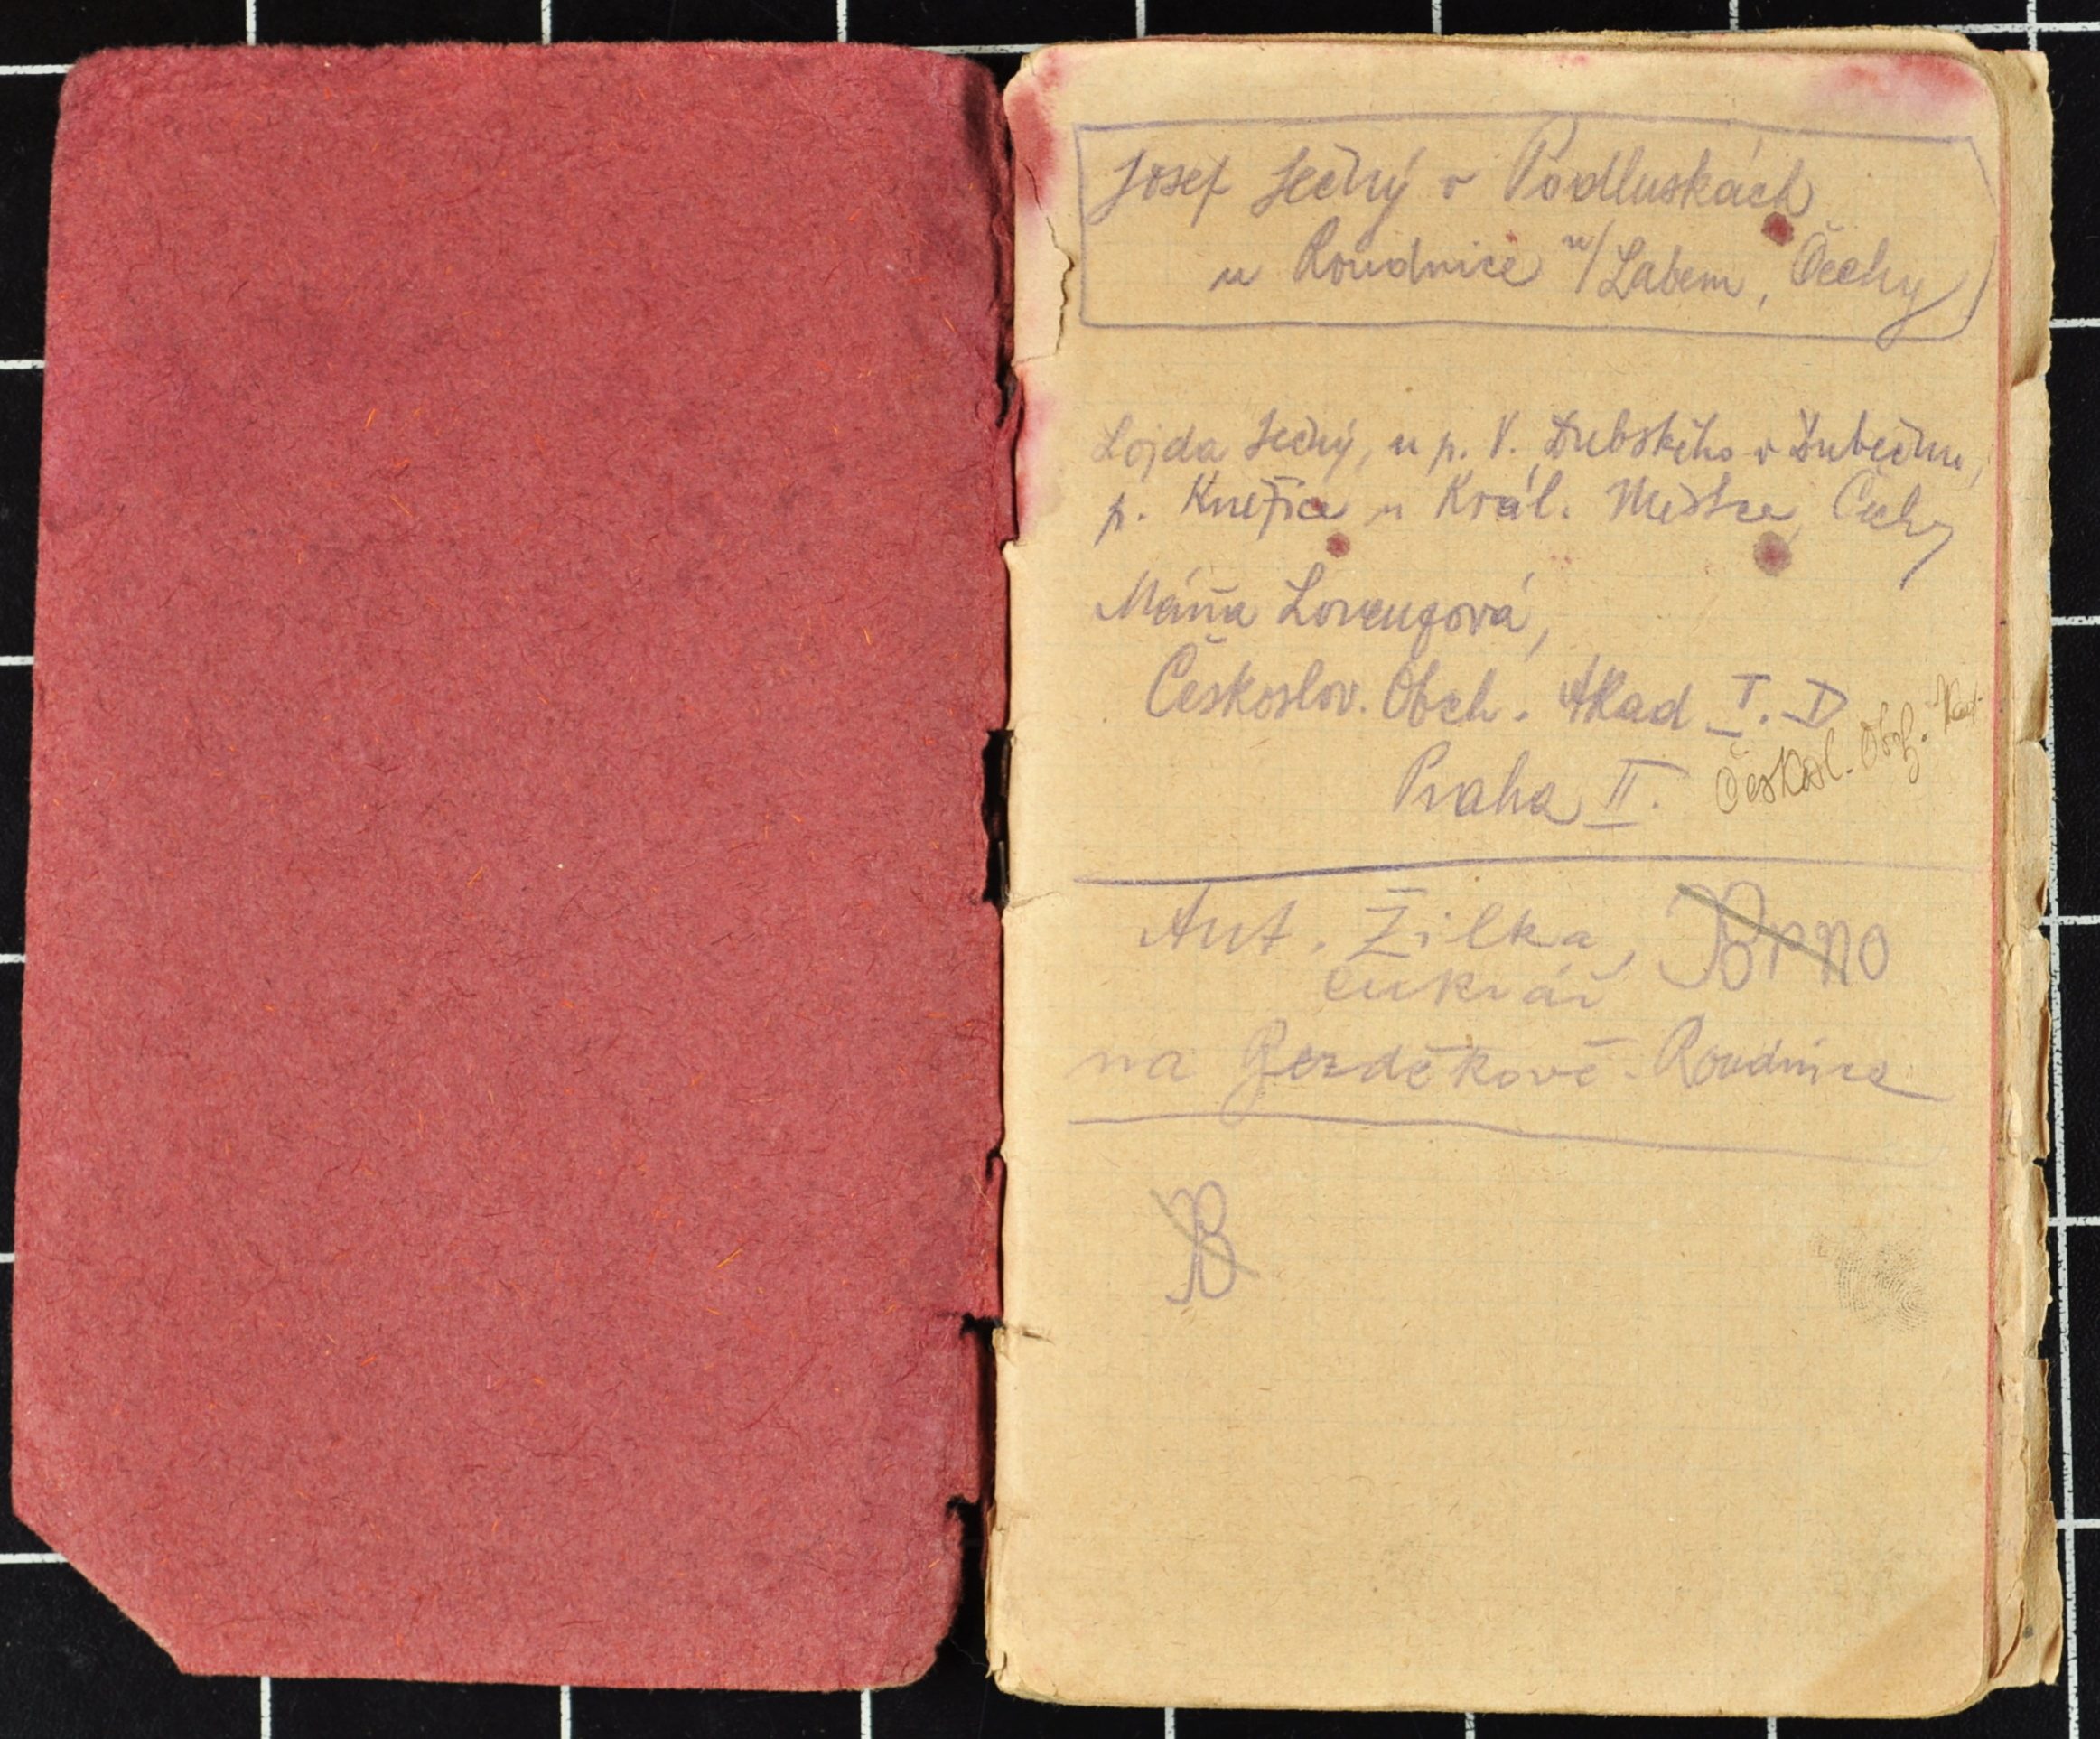 Josef Ječný v Podluskách
u Roudnice n/Labem, Čechy
Lojda Ječný, u p. V. Dubského v Dubečnu,
p. Kněžice u Král. Městce, Čechy
Máňa Lorenzová,
Českoslov. Obch. Akad I. D
Praha II.
Českosl. Obch.
Ant. Žilka, Brno
cukrář
na Bezděkově - Roudnice
B